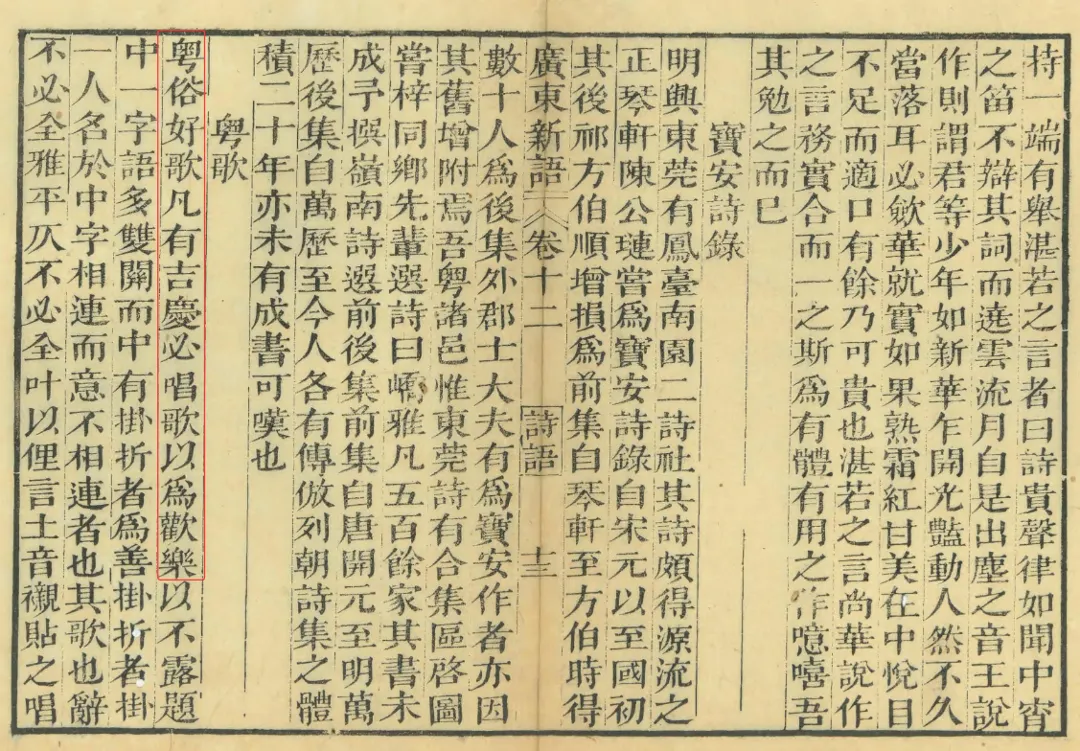 持一端有舉湛若之言者曰詩貴聲律如聞中宵
之笛不辯其詞而遶雲流月自是出塵之音王說
作則謂君等少年如新華乍開光豔動人然不久
當落耳必斂華就實如果熟霜紅甘美在中悅目
不足而適口有餘乃可貴也湛若之言尚華說作
之言務實合而一之斯爲有體有用之作噫嘻吾
其勉之而已
寶安詩錄
明興東莞有鳳臺南園二詩社其詩頗得源流之
正琴軒陳公璉嘗爲寶安詩錄自宋元以至國初
其後祁方伯順增損爲前集自琴軒至方伯時得
廣東新語 卷十二 詩語 十三
數十人爲後集外郡士大夫有爲寶安作者亦因
其舊增附焉吾粵諸邑惟東莞詩有合集區啓圖
嘗梓同鄉先輩選詩曰嶠雅凡五百餘家其書未
成予撰嶺南詩選前後集前集自唐開元至明萬
歷後集自萬歷至今人各有傳倣列朝詩集之體
積二十年亦未有成書可嘆也
粵歌
粵俗好歌凡有吉慶必唱歌以爲歡樂以不露題
中一字語多雙關而中有掛折者爲善掛折者掛
一人名於中字相連而意不相連者也其歌也辭
不必全雅平仄不必全叶以俚言土音襯貼之唱